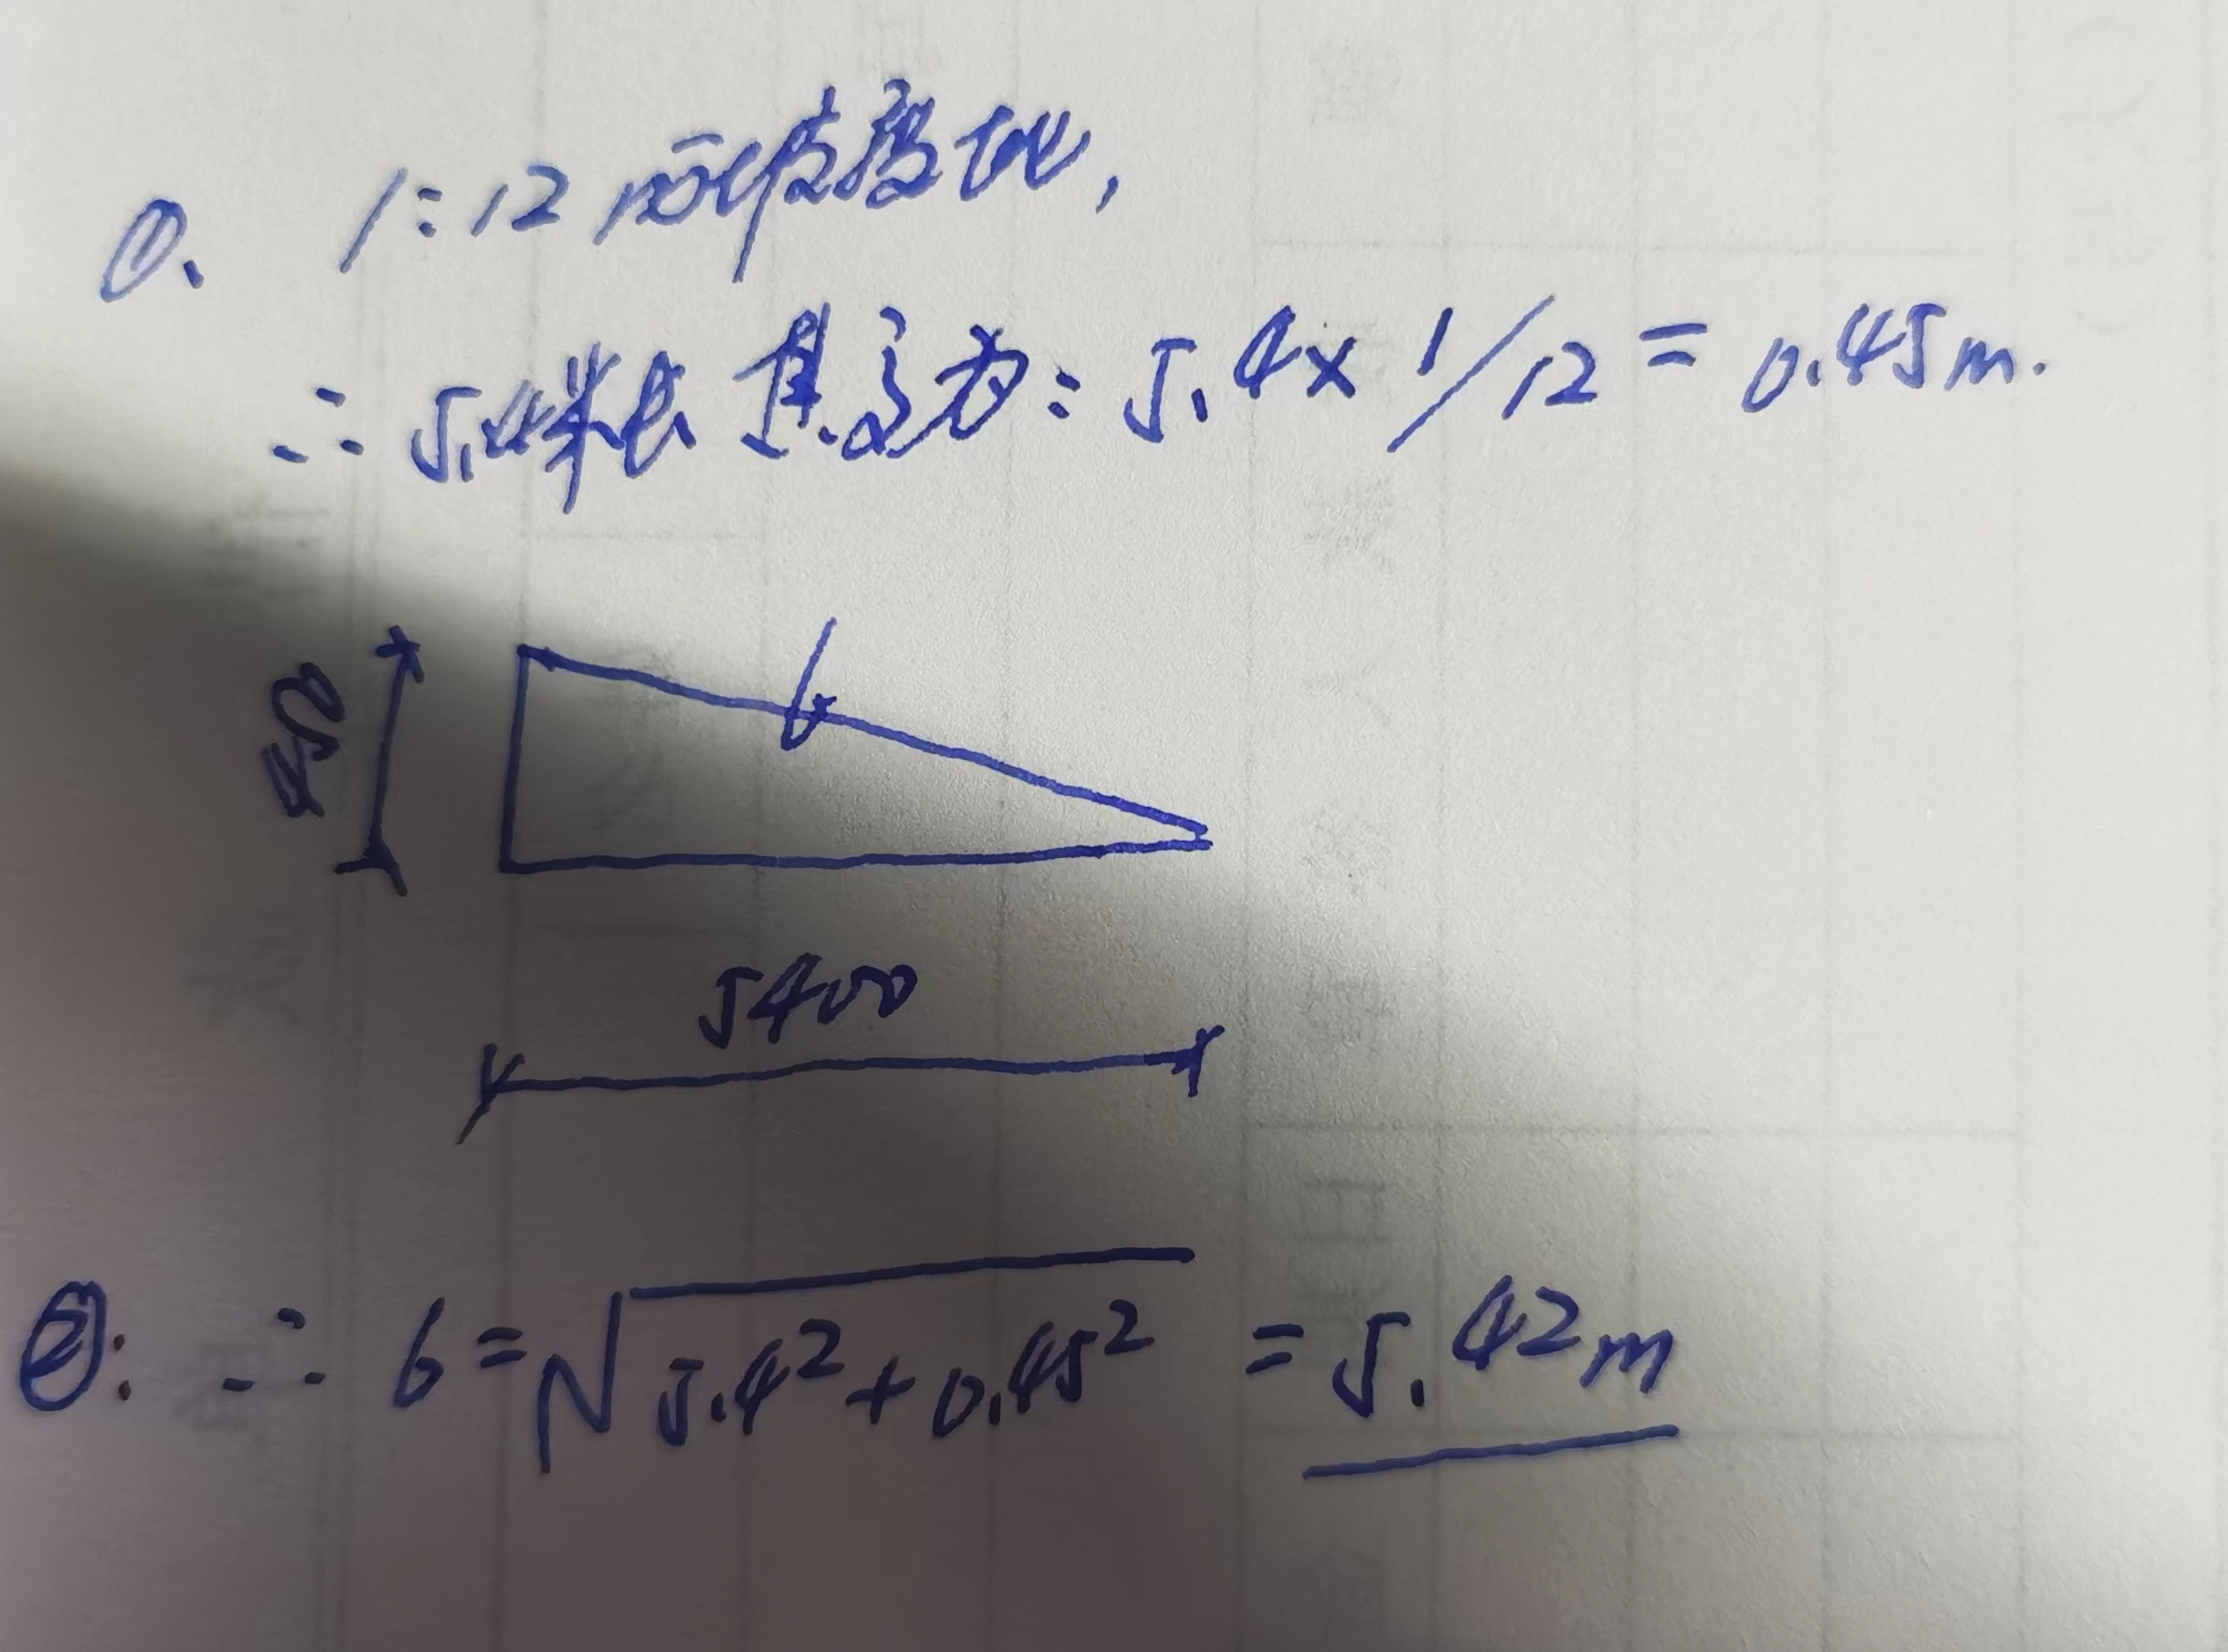 ①. 1:12 为坡度比,
∴ 5.4米长 其高为: 5.4×1/12=0.45m.
6
450
5400
②: ∴ 6=√5.4²+0.45² =5.42m